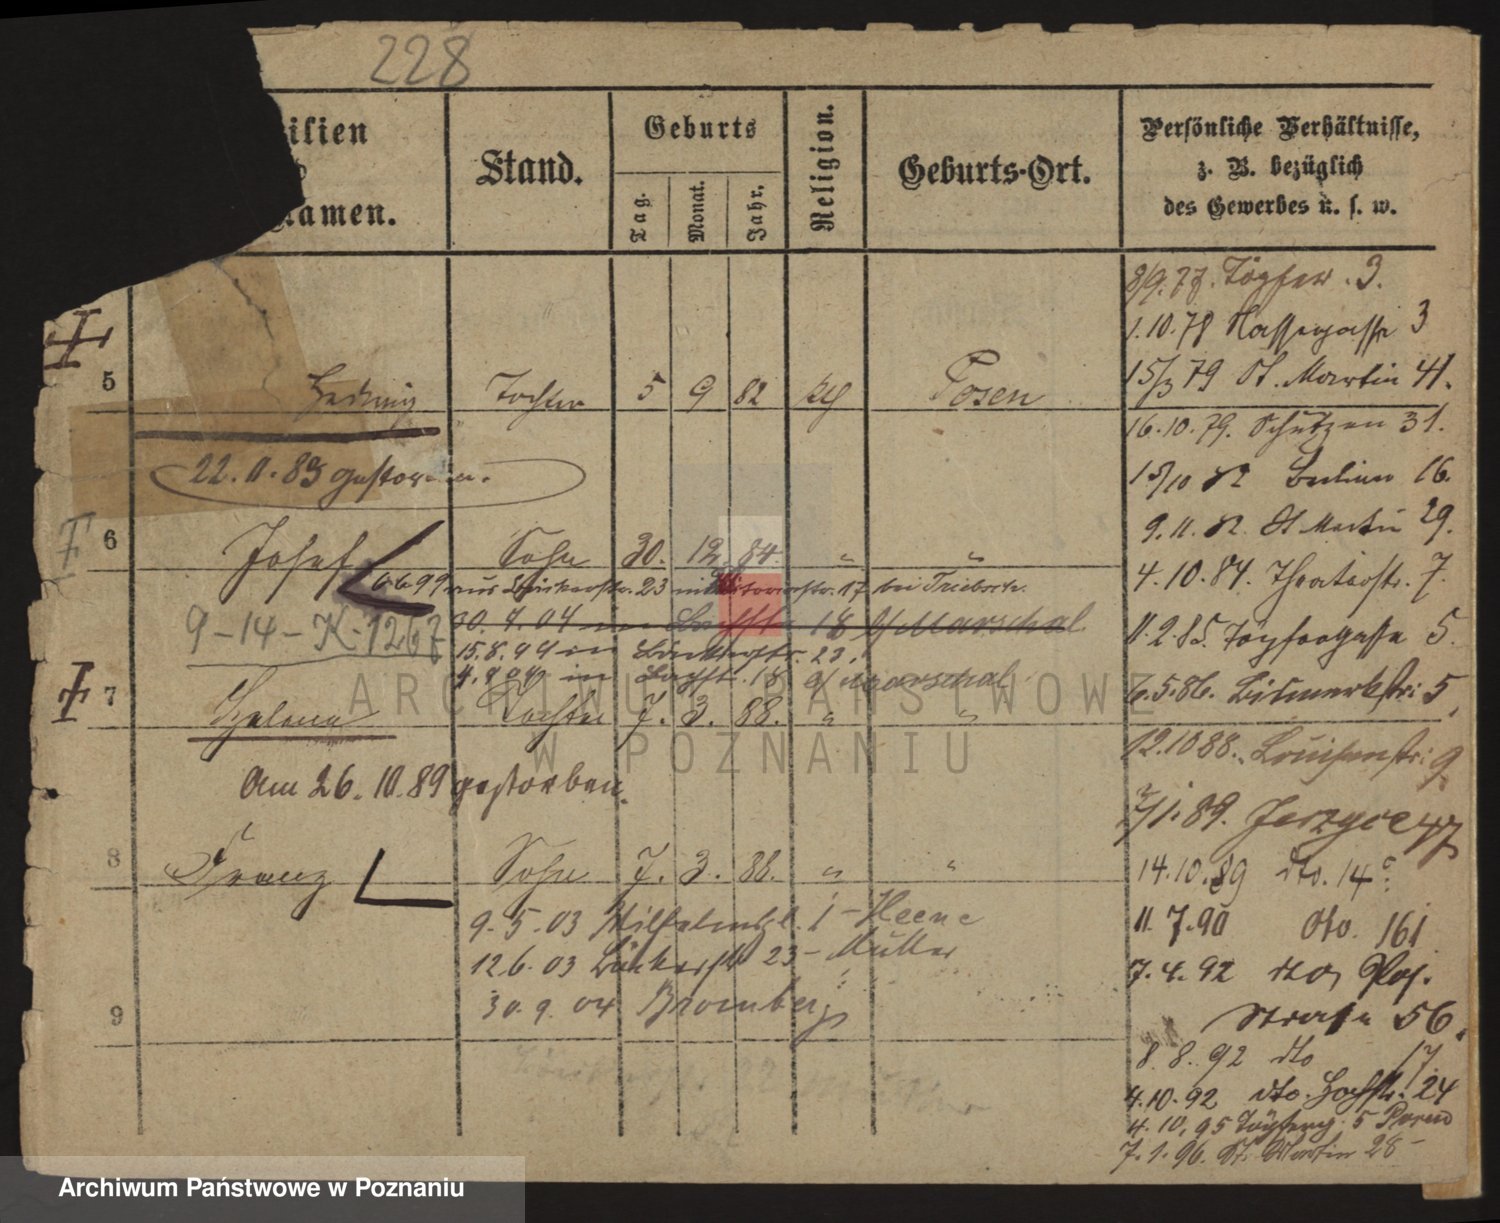 228
ilien
amen.
Stand.
Geburts
Tag.
Monat.
Jahr.
Religion.
Geburts-Ort.
Persönliche Verhältnisse,
z. B. bezüglich
des Gewerbes u. s. w.
8/9. 78. Töpfer. 3.
1.10.78 3
5 Hedwig Tochter 5 9 82 kth Posen
15/3 79 St. Martin 41.
16.10.79. Schützen 31.
22.11.83 gestorben.
15/10 82 Berliner 16.
9.11.82 St Martin 29.
6 Josef Sohn 30. 12. 84. " "
6.6.99 aus Bäckerstr. 23 Victoriastr. 17 bei
4.10.84. Theaterstr. 7.
9-14-K-1267
30.7.04 in 18 b/ Marschal
15.8.99 in Bäckerstr. 23.
11.2.85. Töpfergasse 5.
4.9.04 in 18 b/ Marschal
7 Helena Tochter 7. 3. 88. " "
6.5.86. Bismarckstr: 5.
Am 26.10.89 gestorben.
12.10 88. Louisenstr: 9
2/1.89. Jerzyce 47
8 Franz Sohn 7. 3. 88. " "
14.10.89 dto. 14a
9.5.03 1 - Heene
11.7.90 dto. 161
12.6.03 Bäckerstr 23 - Müller
7.4.92 dto, Pos.
30.9.04 Bromberg
Straße 56.
9
8.8.92 dto 17.
4.10.92 dto. 24
4.10.95 Töpferg. 5
7.1.96. St. Martin 28-
ARCHIWUM PAŃSTWOWE
W POZNANIU
Archiwum Państwowe w Poznaniu